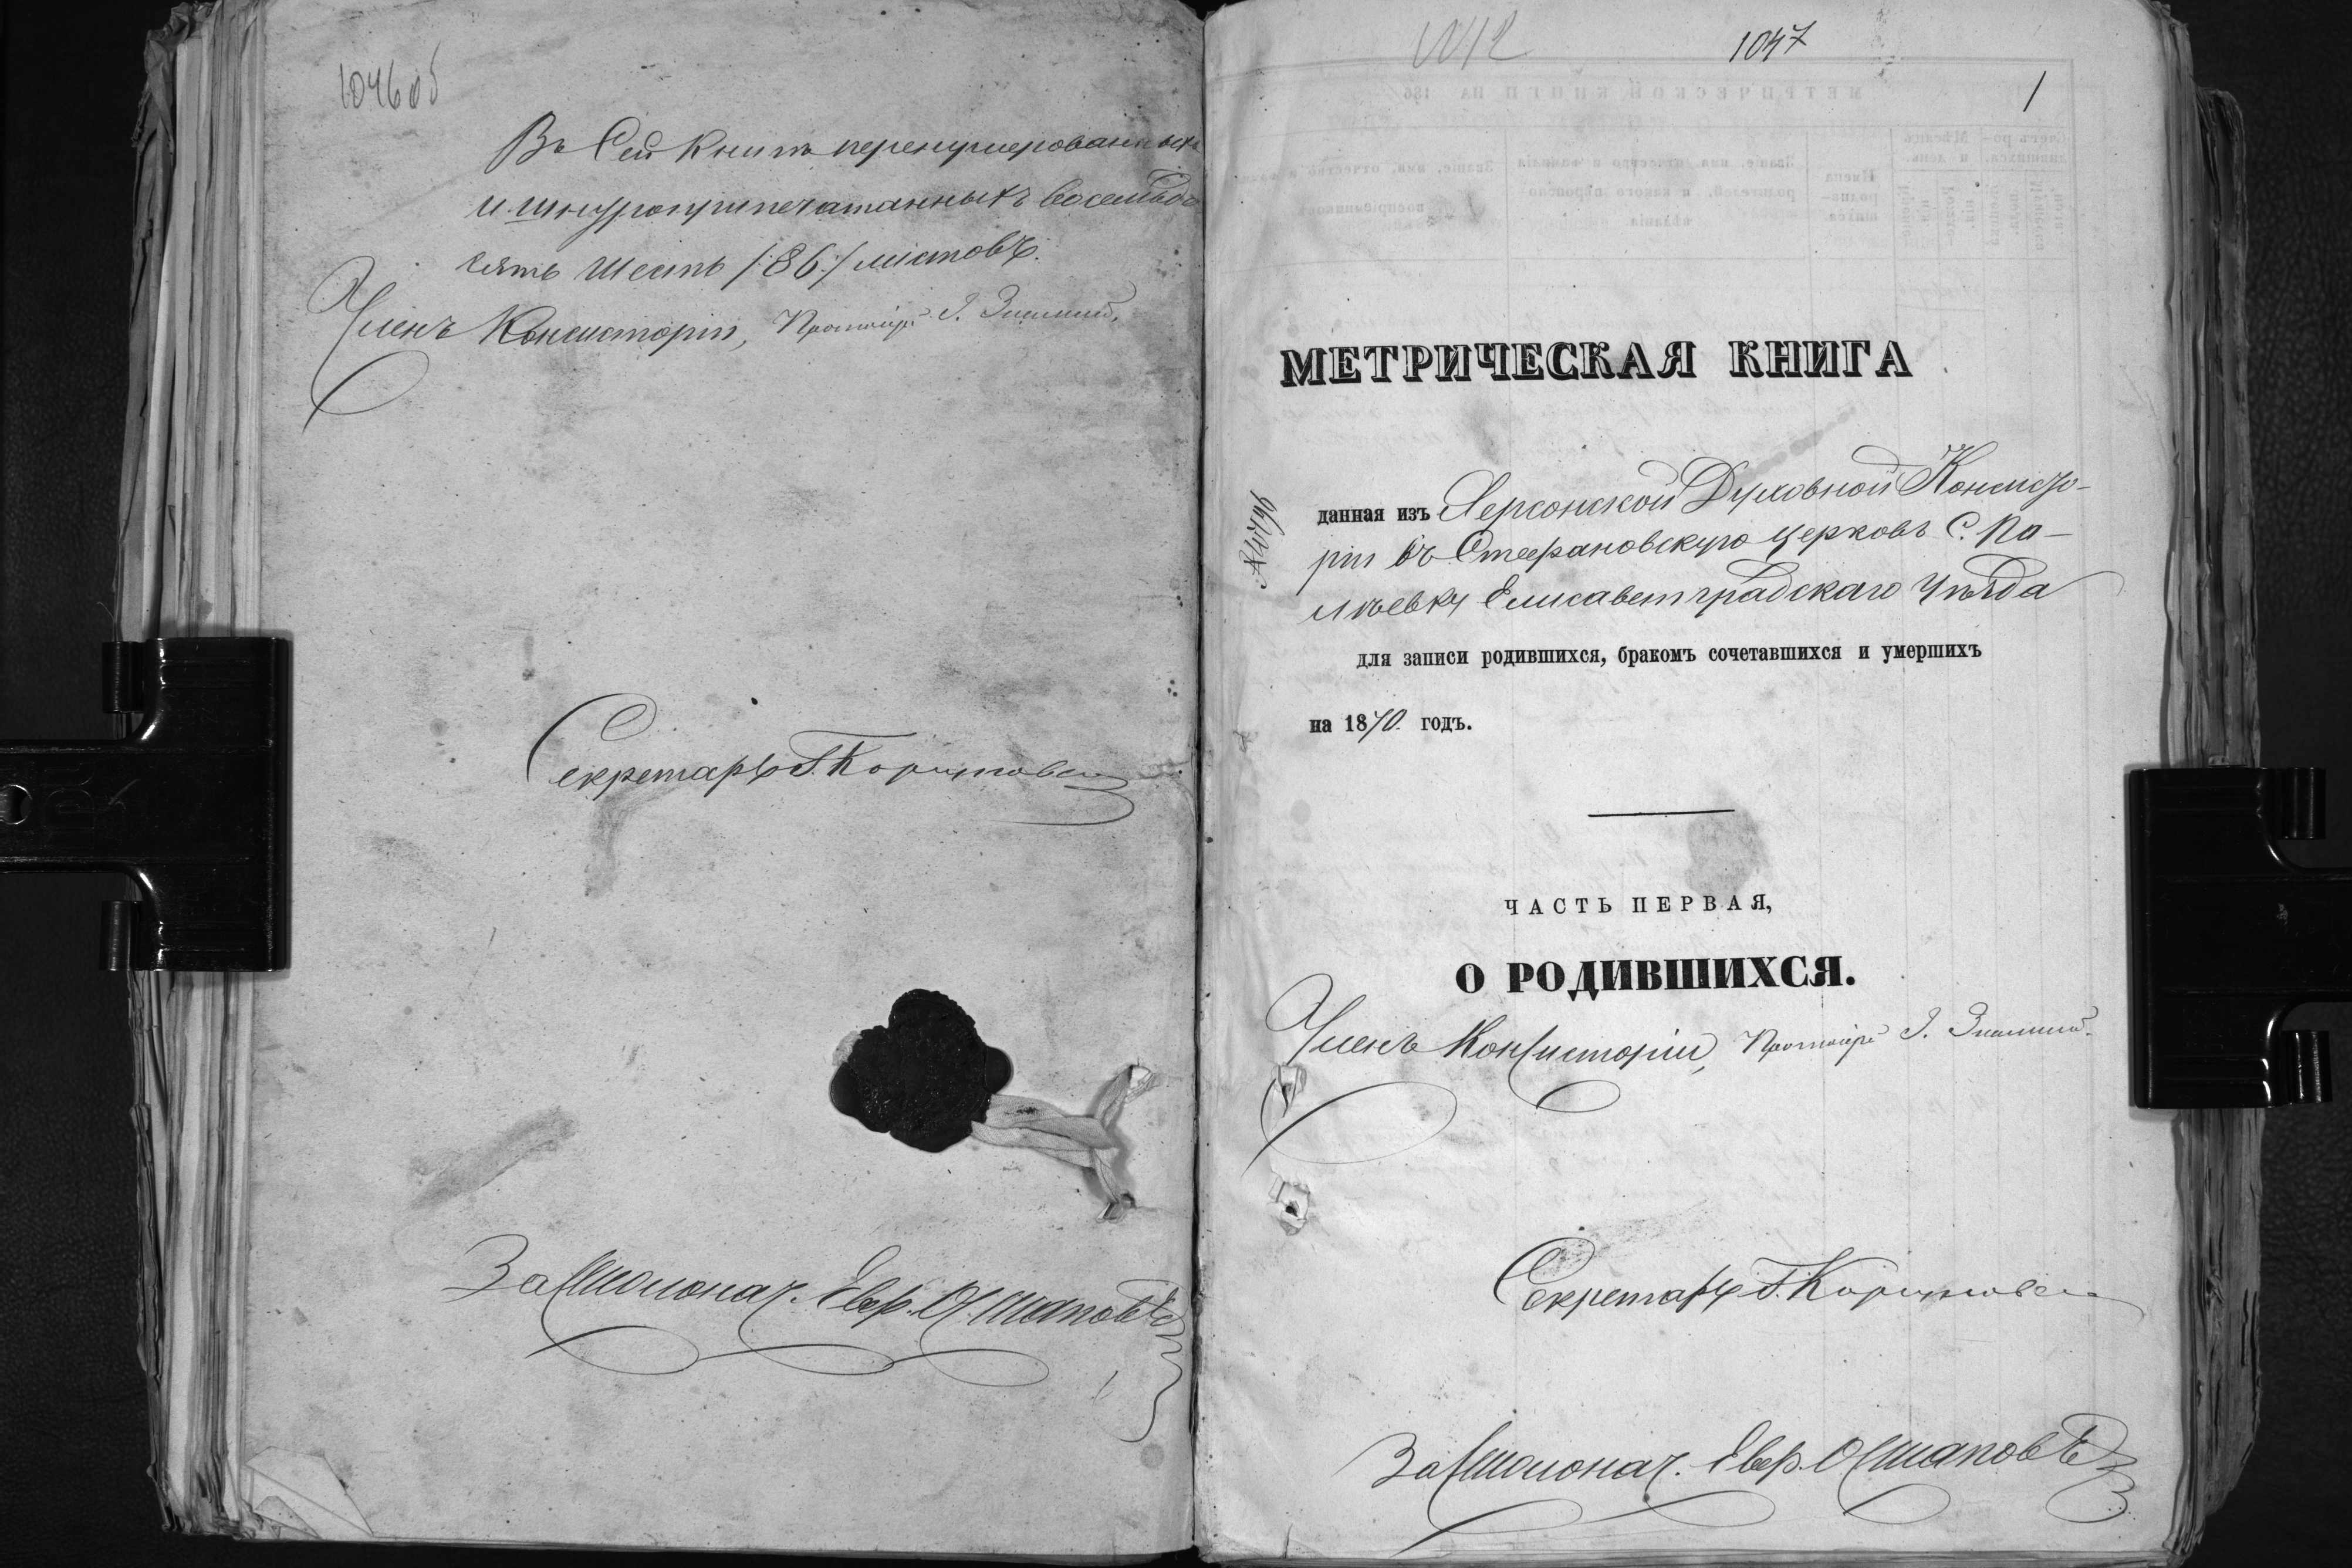 1046об
Въ Сей Книгѣ перенумерованныхъ
и шнуроприпечатанныхъ восемьде-
сятъ шесть /:86:/ листовъ.
Членъ Консисторіи, Протоіерей І. Знаменскій.
Секретарь
За Столонач.
№12
1047
1
МЕТРИЧЕСКАЯ КНИГА
данная изъ Херсонской Духовной Консисто-
ріи въ Стефановскую церковь С. Па-
лѣевку Елисаветградскаго Уѣзда
для записи родившихся, бракомъ сочетавшихся и умершихъ
на 1870. годъ.
ЧАСТЬ ПЕРВАЯ,
О РОДИВШИХСЯ.
Членъ Консисторіи, Протоіерей І. Знаменскій.
Секретарь
За Столонач.